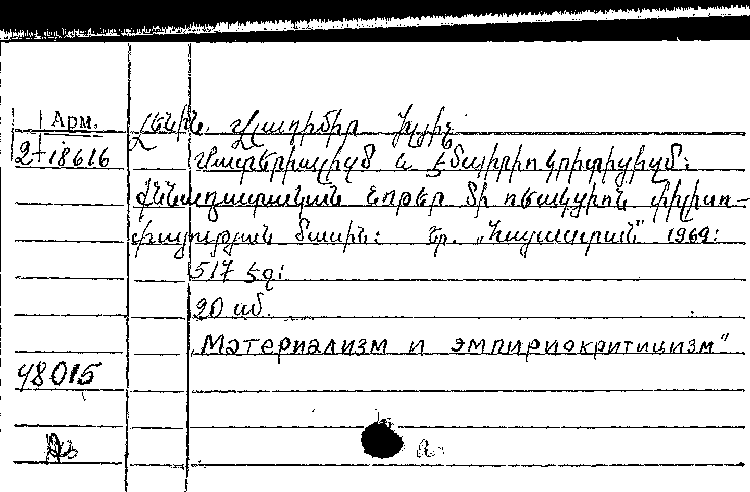 Арм.
2-18616
Լենին, Վլադիմիր Իլյիչ
Մատերիալիզմ և էմպիրիոկրիտիցիզմ:
Քննադատական նոթեր մի ռեակցիոն փիլիսո-
փայության մասին: Եր. „Հայաստան" 1969:
517 էջ:
20 սմ.
„Материализм и эмпириокритицизм"
48015
а.